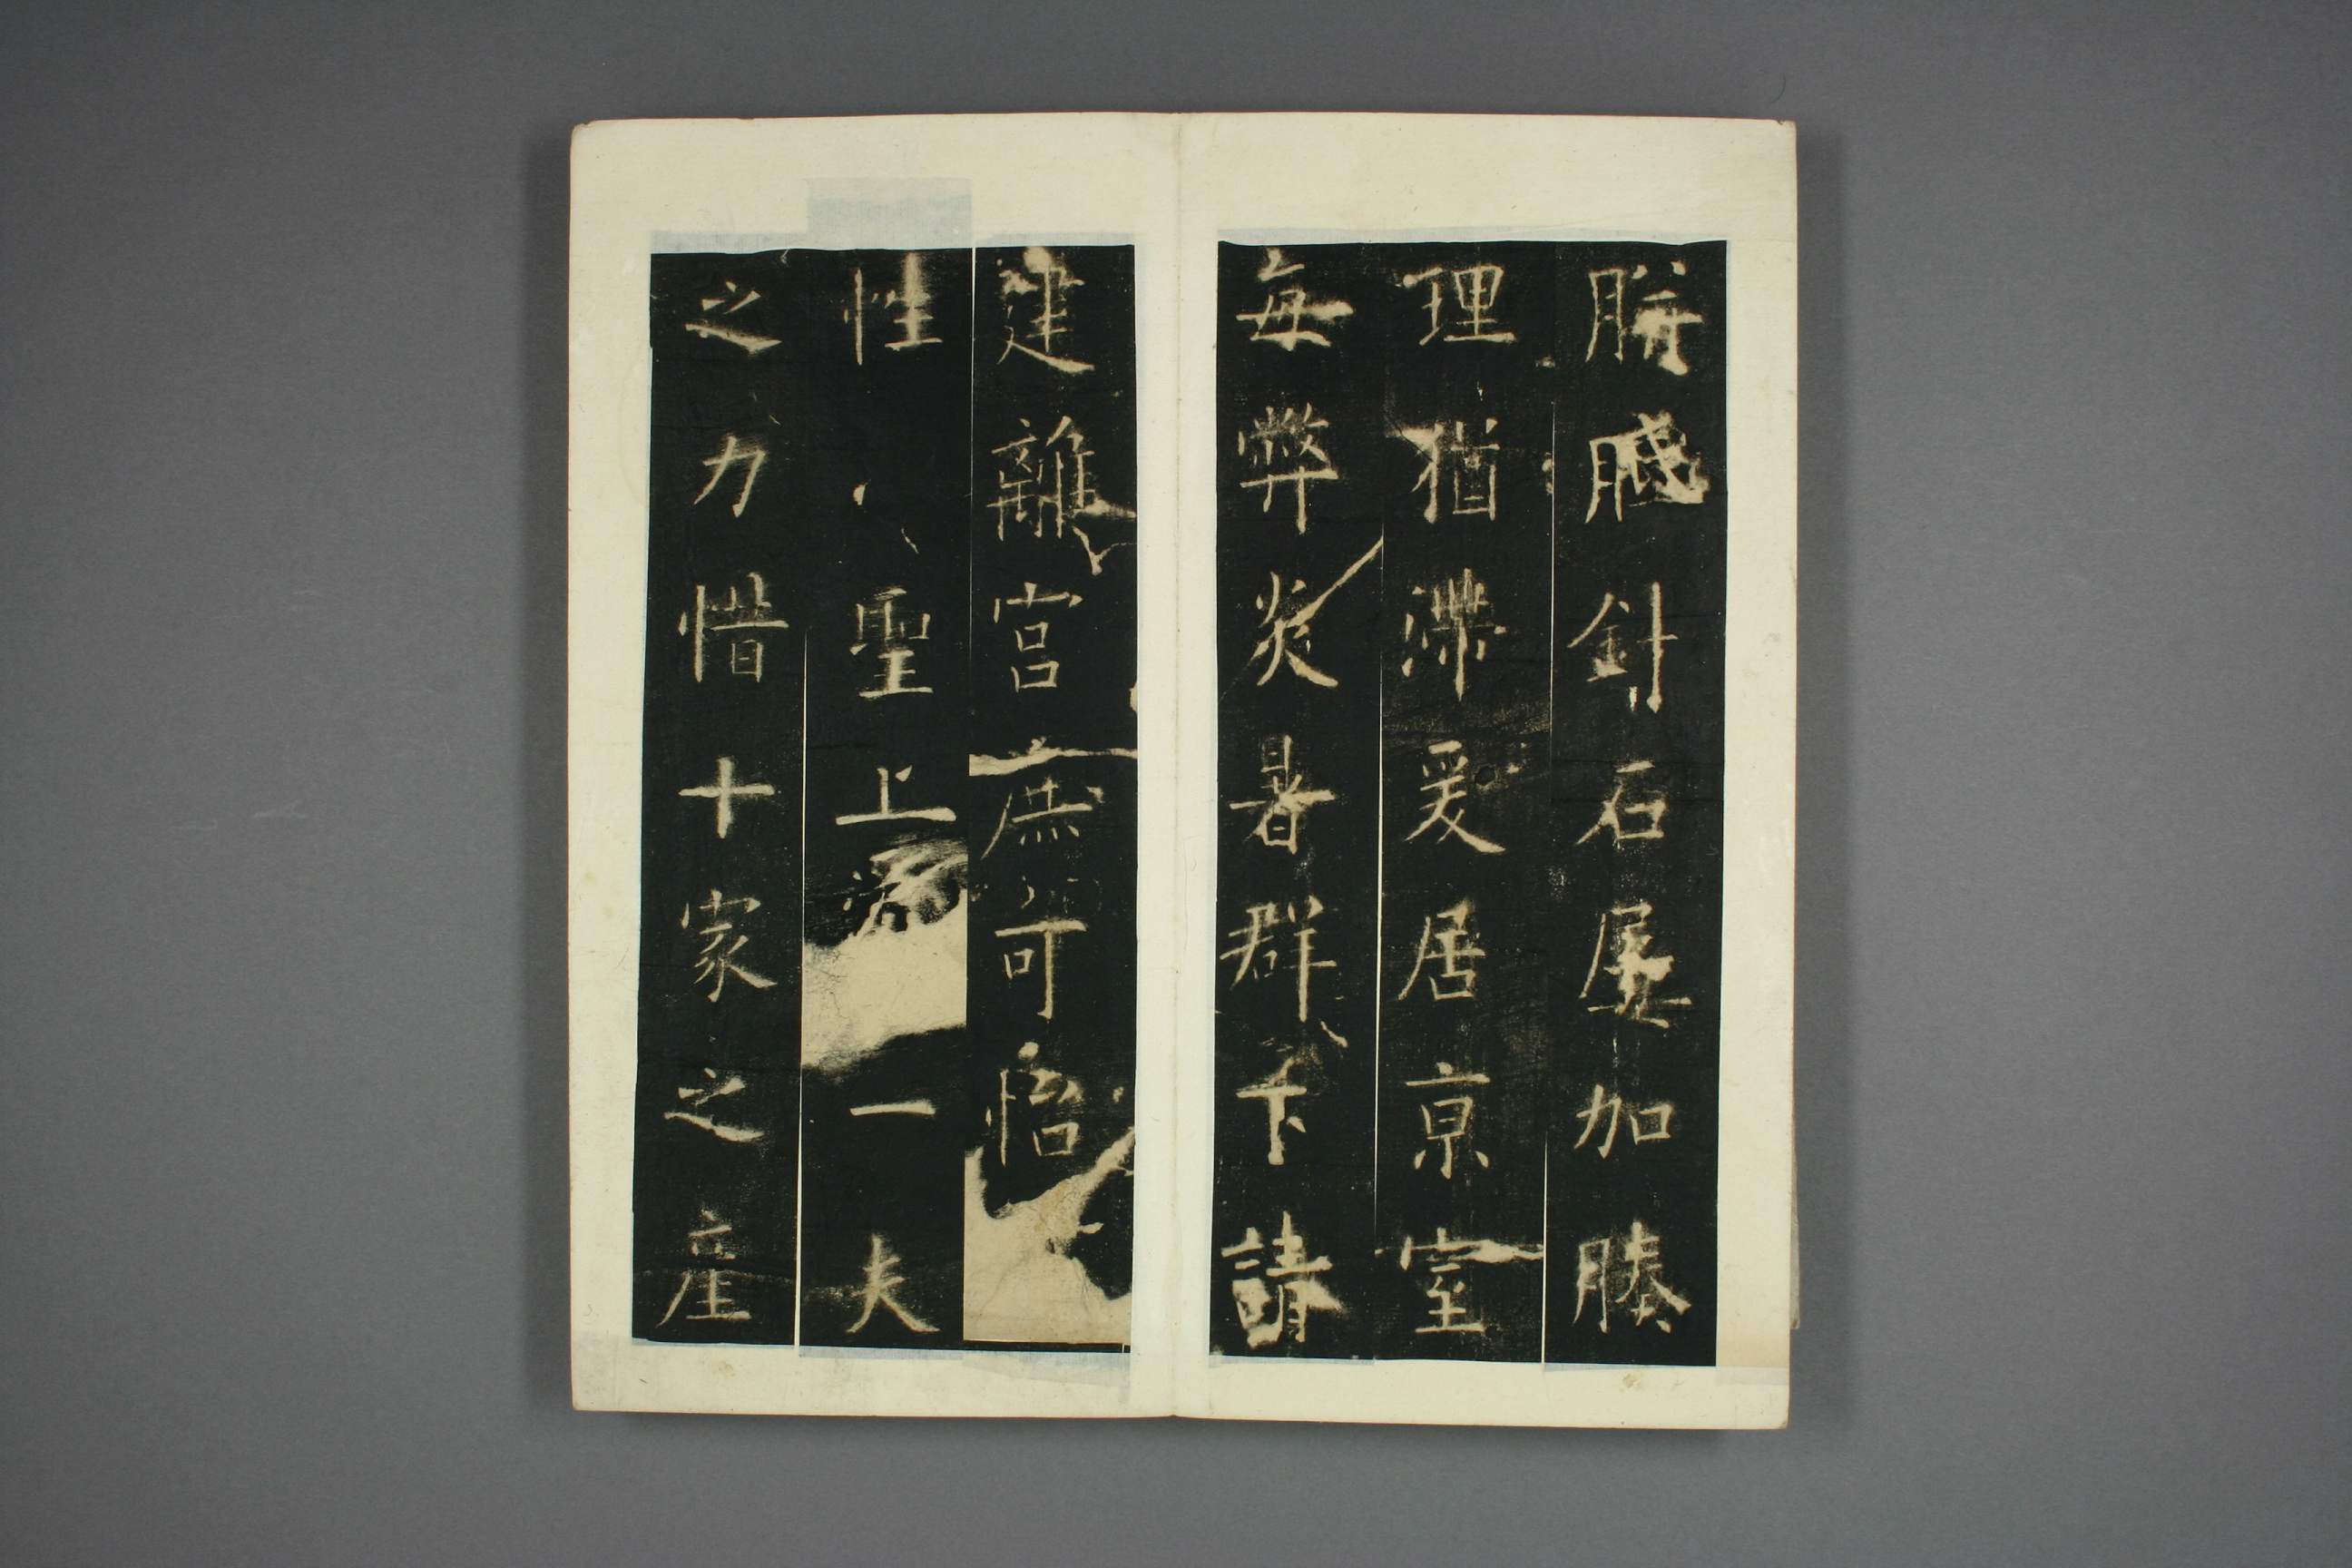 胼胝針石屢加腠
理猶滯爰居京室
每弊炎暑群下請
建離宮庶可怡
性聖上一夫
之力惜十家之產